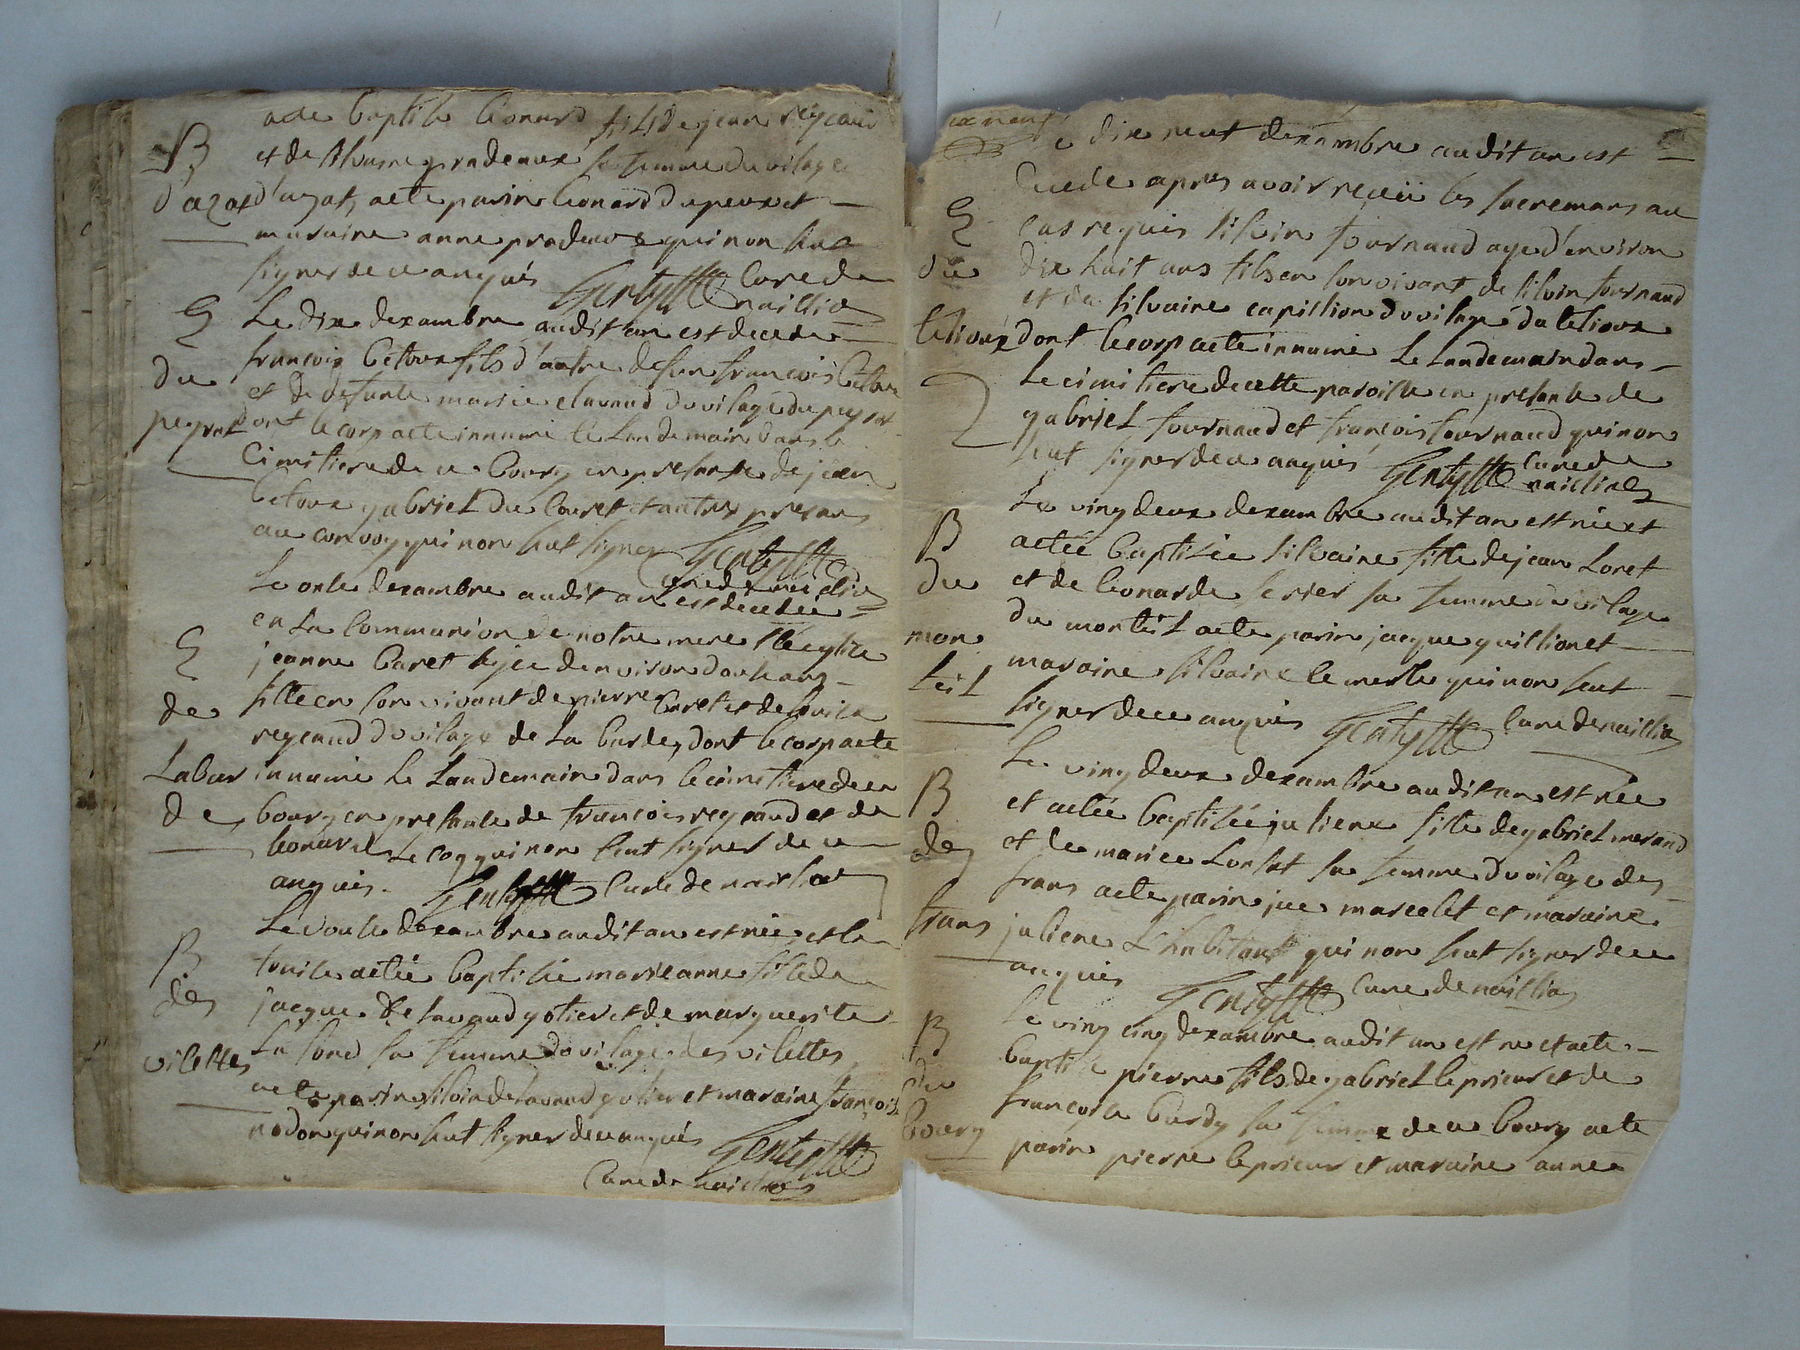 acte baptisé leonard fils de jean reycaud
B et de silvaine pradeaux sa femme du vilage
d'azat d'azat, acte parin leonard dupeux et
maraine anne pradeaux qui non sut
signer de ce anquis Gentyltte Cure de
naillia
E Le dix dexambre audit an est decede
francois betoux fils d'autre defun francois betoux
du et de defunte marie clavaud du vilage du peyrat
peyrat dont le corp acte innumé le Landemain dans le
cimitiere de ce bourg en presante de jean
betoux gabriel du couret et autres presans
au convoy qui non sut signer Gentyltte
Cure de naillia
Le onse dexambre audit an est décédée
en La Communion de notre mere Ste eglise
E jeanne baret agée denviron douse ans
fille en son vivant de pierre baret et de louise
de reycaud du vilage de La barde, dont le corp acte
Labar innumé le Landemain dans le cimetiere de ce
de bourg en presante de francois reycaud et de
leonard Le coq qui non sut signer de ce
anquis. Gentyltte Cure de naillia
Le douse dexambre audit an est née, et
B actée baptisée marie anne fille de
des jacque de lavaud gotier et de marguerite
La fond sa femme du vilage des vilettes
vilettes acte parin silvin de lavaud gotier et maraine francoise
nadon qui non sut signer de ce anquis Gentyltte
Cure de naillia
Le dix neuf dexambre audit an est
decede apres avoir reçeü les sacremans au
E cas requis silvin fournaud age d'environ
du dix huit ans fils en son vivant de silvin fournaud
et de silvaine capillion du vilage du telioux
telioux dont le corp acte innumé Le Landemain dans
Le cimitiere de cette paroisse en presante de
gabriel fournaud et francois fournaud qui non
sut signer de ce anquis Gentyltte Cure de
naillia
Le ving deux dexambre audit an est née et
B actée baptisée silvaine fille de jean Loret
du et de leonarde serier sa femme du vilage
mon du monteil acte parin jacque guillion et
teil maraine silvaine le merle qui non sut
signer de ce anquis Gentyltte Cure de naillia
Le ving deux dexambre audit an est née
B et actée baptisée juliene fille de gabriel merand
des et de mariee Lonsat sa femme du vilage des
frans acte parin jac marcelet et maraine
frans juliene L'habitant qui non sut signer de ce
anquis Gentyltte Cure de naillia
Le ving cinq dexambre audit an est ne et acte
B baptisé pierre fils de gabriel leprieur et de
du francoise bardy sa femme de ce bourg acte
bourg parin pierre leprieur et maraine anne